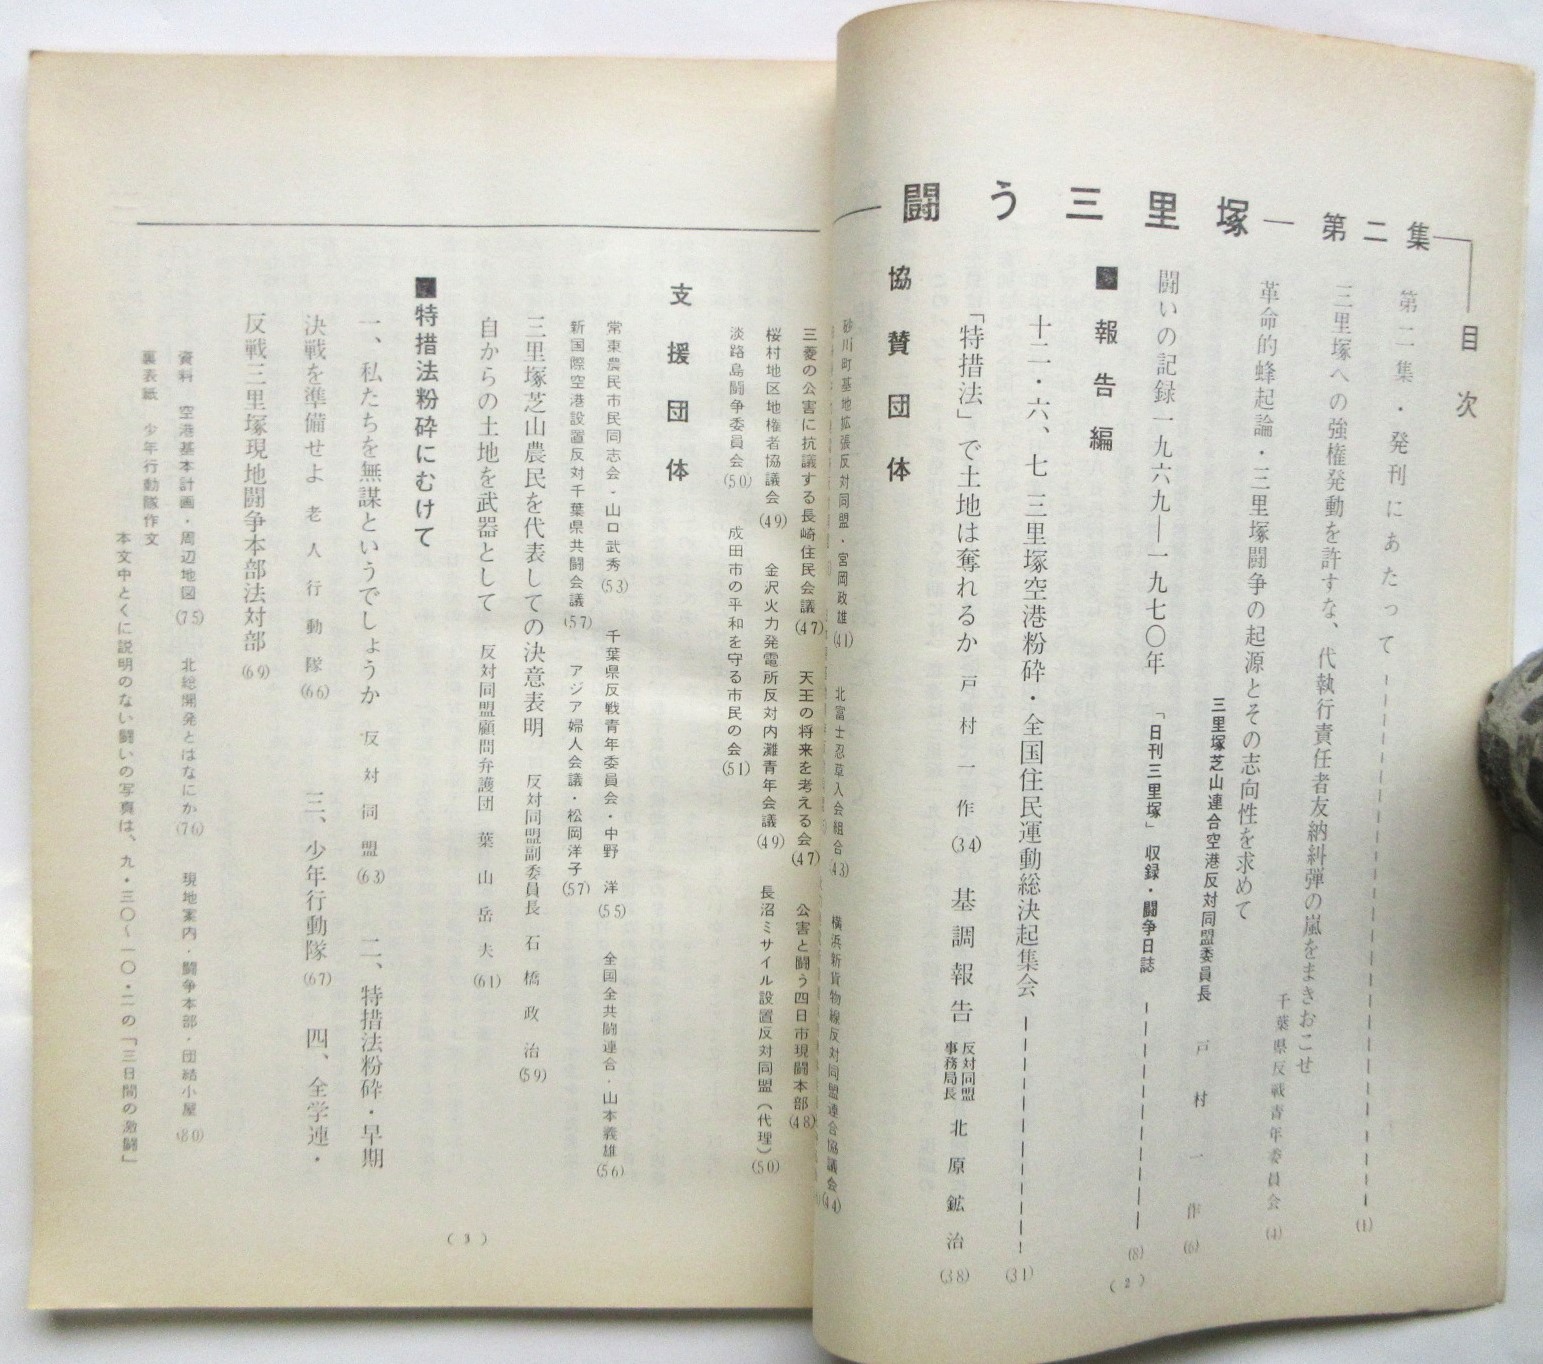 闘う三里塚―第二集
目次
第二集・発刊にあたって (1)
三里塚への強権発動を許すな、代執行責任者友納糾弾の嵐をまきおこせ
千葉県反戦青年委員会 (4)
革命的蜂起論・三里塚闘争の起源とその志向性を求めて
三里塚芝山連合空港反対同盟委員長 戸村一作 (6)
闘いの記録一九六九―一九七〇年 「日刊三里塚」収録・闘争日誌 (8)
■報告編
十二・六、七 三里塚空港粉砕・全国住民運動総決起集会 (31)
「特措法」で土地は奪れるか 戸村一作 (34) 基調報告 反対同盟事務局長 北原鉱治 (38)
協賛団体
砂川町基地拡張反対同盟・宮岡政雄 (41) 北富士忍草入会組合 (43) 横浜新貨物線反対同盟連合協議会 (44)
三菱の公害に抗議する長崎住民会議 (47) 天王の将来を考える会 (47) 公害と闘う四日市現闘本部 (48)
桜村地区地権者協議会 (49) 金沢火力発電所反対内灘青年会議 (49) 長沼ミサイル設置反対同盟(代理) (50)
淡路島闘争委員会 (50) 成田市の平和を守る市民の会 (51)
支援団体
常東農民市民同志会・山口武秀 (53) 千葉県反戦青年委員会・中野洋 (55) 全国全共闘連合・山本義雄 (56)
新国際空港設置反対千葉県共闘会議 (57) アジア婦人会議・松岡洋子 (57)
三里塚芝山農民を代表しての決意表明 反対同盟副委員長 石橋政治 (59)
自からの土地を武器として 反対同盟顧問弁護団 葉山岳夫 (61)
■特措法粉砕にむけて
一、私たちを無謀というでしょうか 反対同盟 (63) 二、特措法粉砕・早期
決戦を準備せよ 老人行動隊 (66) 三、少年行動隊 (67) 四、全学連・
反戦三里塚現地闘争本部法対部 (69)
資料 空港基本計画・周辺地図 (75) 北総開発とはなにか (76) 現地案内・闘争本部・団結小屋 (80)
裏表紙 少年行動隊作文
本文中とくに説明のない闘いの写真は、九・三〇〜一〇・二の「三日間の激闘」
(2)
(3)